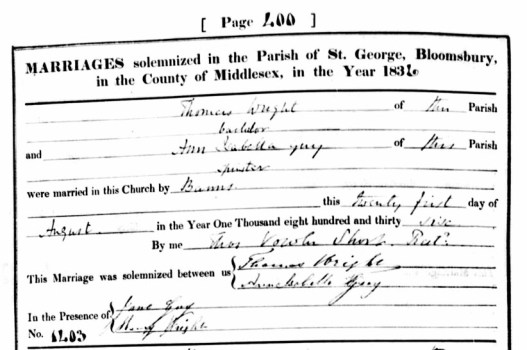 [ Page 400 ]
MARRIAGES solemnized in the Parish of St. George, Bloomsbury,
in the County of Middlesex, in the Year 1836
Thomas Wright of this Parish
bachelor
and Ann Isabella Guy of this Parish
spinster
were married in this Church by Banns
this twenty first day of
August in the Year One Thousand eight hundred and thirty six
By me Thos Vowler Short Rect.
This Marriage was solemnized between us { Thomas Wright
Ann Isabella Guy
In the Presence of { Jane Guy
Wright
No. 1203